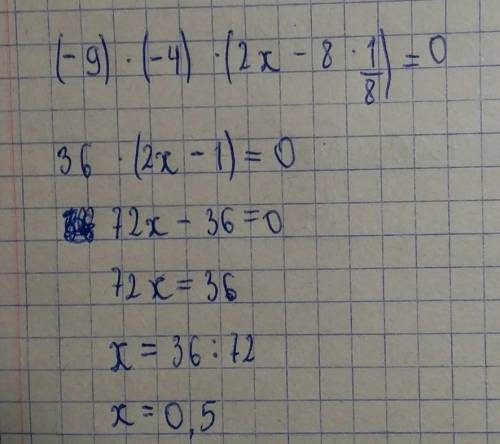 (-9) · (-4) · (2x - 8 · 1/8) = 0
36 · (2x - 1) = 0
72x - 36 = 0
72x = 36
x = 36 : 72
x = 0,5